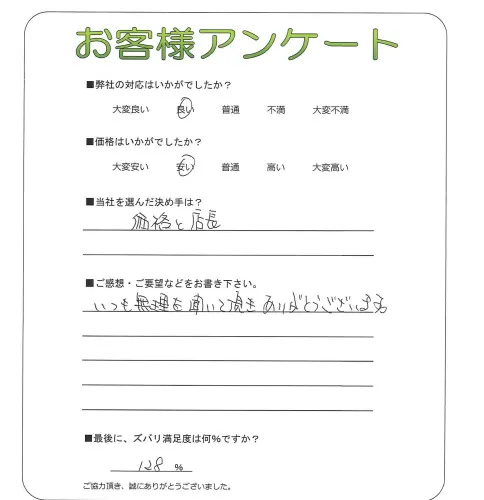 お客様アンケート
■弊社の対応はいかがでしたか？
大変良い 良い 普通 不満 大変不満
■価格はいかがでしたか？
大変安い 安い 普通 高い 大変高い
■当社を選んだ決め手は？
価格と店長
■ご感想・ご要望などをお書き下さい。
いつも無理を聞いて頂きありがとうございます
■最後に、ズバリ満足度は何％ですか？
128 ％
ご協力頂き、誠にありがとうございました。